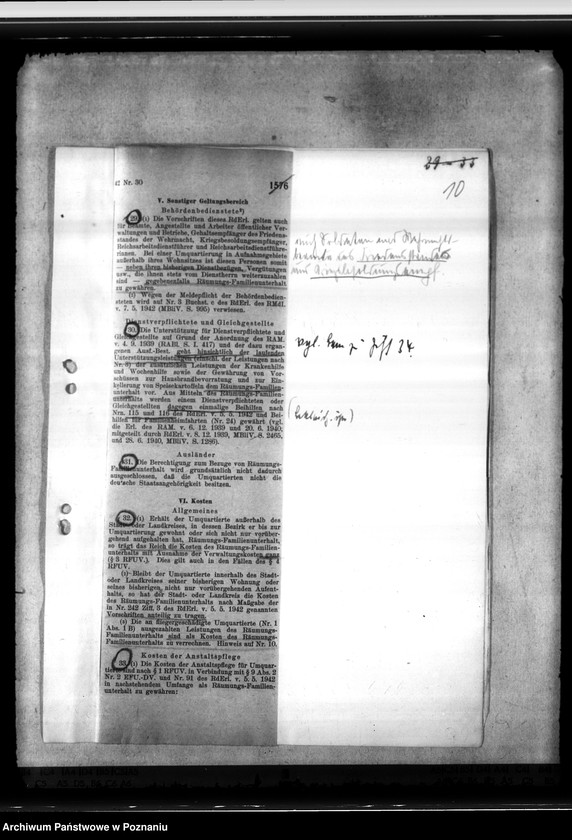 29 – 33
10
42 Nr. 30
1576
V. Sonstiger Geltungsbereich
Behördenbedienstete
29. (1) Die Vorschriften dieses RdErl. gelten auch
für Beamte, Angestellte und Arbeiter öffentlicher Ver-
waltungen und Betriebe, Gehaltsempfänger des Friedens-
standes der Wehrmacht, Kriegsbesoldungsempfänger,
Reichsarbeitsdienstführer und Reichsarbeitsdienstführe-
rinnen. Bei einer Umquartierung in Aufnahmegebiete
außerhalb ihres Wohnsitzes ist diesen Personen somit
— neben ihren bisherigen Dienstbezügen, Vergütungen
usw., die ihnen vom Dienstherrn weiterzuzahlen
sind — gegebenenfalls Räumungs-Familienunterhalt
zu gewähren.
(2) Wegen der Meldepflicht der Behördenbedien-
steten wird auf Nr. 3 Buchst. c des RdErl. des RMdI.
v. 7. 5. 1942 (MBliV. S. 995) verwiesen.
Dienstverpflichtete und Gleichgestellte
30. Die Unterstützung für Dienstverpflichtete und
Gleichgestellte auf Grund der Anordnung des RAM.
v. 4. 9. 1939 (RABl. S. I 417) und der dazu ergan-
genen Ausf.-Best. geht hinsichtlich der laufenden
Unterstützungsleistungen (einschl. der Leistungen nach
der zusätzlichen Leistungen der Krankenhilfe
und Wochenhilfe sowie der Gewährung von Vor-
schüssen zur Hausbrandbevorratung und zur Ein-
kellerung von Speisekartoffeln dem Räumungs-Familien-
unterhalt vor. Aus Mitteln des Räumungs-Familien-
unterhalts werden einem Dienstverpflichteten oder
Gleichgestellten dagegen einmalige Beihilfen nach
Nrn. 115 und 116 des RdErl. v. 5. 5. 1942 und Bei-
hilfen für Familienheimfahrten (Nr. 24) gewährt (vgl.
die Erl. des RAM. v. 6. 12. 1939 und 20. 6. 1940,
mitgeteilt durch RdErl. v. 8. 12. 1939, MBliV. S. 2465,
und 28. 6. 1940, MBliV. S. 1286).
Ausländer
31. Die Berechtigung zum Bezuge von Räumungs-
Familienunterhalt wird grundsätzlich nicht dadurch
ausgeschlossen, daß die Umquartierten nicht die
deutsche Staatsangehörigkeit besitzen.
VI. Kosten
Allgemeines
32. (1) Erhält der Umquartierte außerhalb des
Stadt- oder Landkreises, in dessen Bezirk er bis zur
Umquartierung gewohnt oder sich nicht nur vorüber-
gehend aufgehalten hat, Räumungs-Familienunterhalt,
so trägt das Reich die Kosten des Räumungs-Familien-
unterhalts mit Ausnahme der Verwaltungskosten ganz
(§ 3 RFUV.). Dies gilt auch in den Fällen des § 4
RFUV.
(2) Bleibt der Umquartierte innerhalb des Stadt-
oder Landkreises seiner bisherigen Wohnung oder
seines bisherigen, nicht nur vorübergehenden Aufent-
halts, so hat der Stadt- oder Landkreis die Kosten
des Räumungs-Familienunterhalts nach Maßgabe der
in Nr. 242 Ziff. 3 des RdErl. v. 5. 5. 1942 genannten
Vorschriften anteilig zu tragen.
(3) Die an fliegergeschädigte Umquartierte (Nr. 1
Abs. 1 B) ausgezahlten Leistungen des Räumungs-
Familienunterhalts sind als Kosten des Räumungs-
Familienunterhalts zu verrechnen. Hinweis auf Nr. 10.
Kosten der Anstaltspflege
33. (1) Die Kosten der Anstaltspflege für Umquar-
tierte sind nach § 1 RFUV. in Verbindung mit § 9 Abs. 2
Nr. 2 RFU.-DV. und Nr. 91 des RdErl. v. 5. 5. 1942
in nachstehendem Umfange als Räumungs-Familien-
unterhalt zu gewähren:
Archiwum Państwowe w Poznaniu